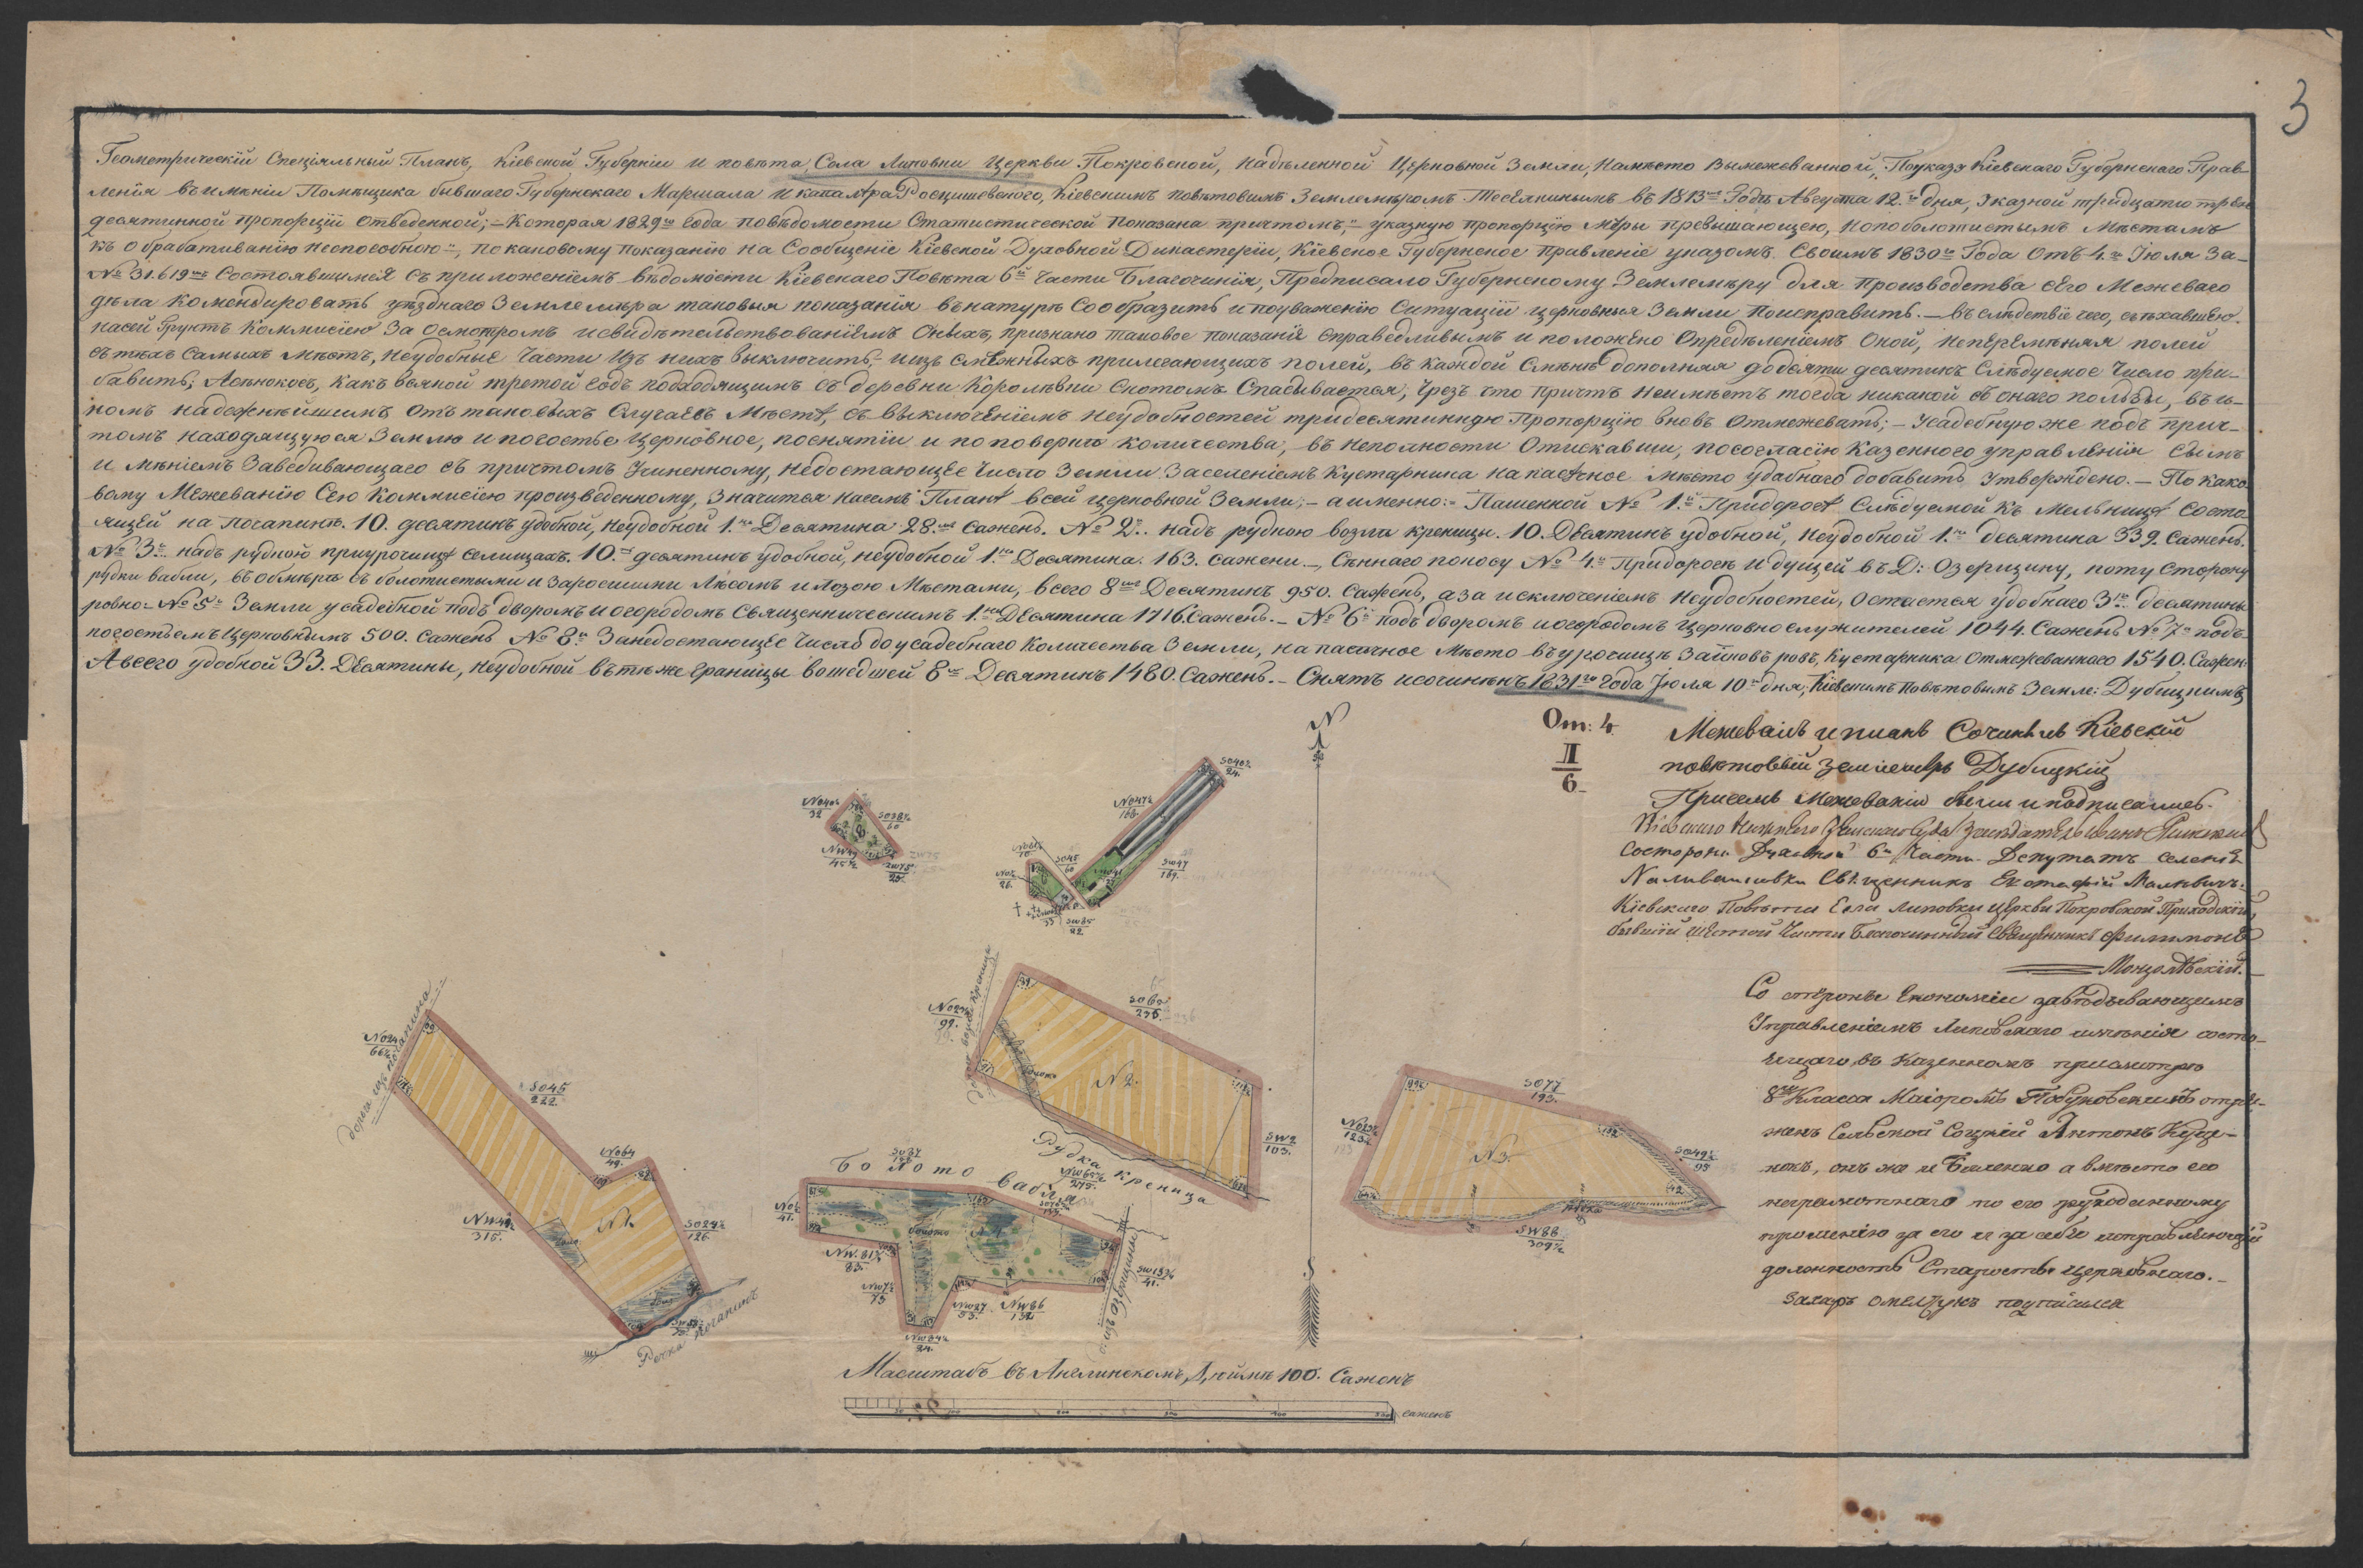 3
Геометрическій Спеціяльный Планъ, Кіевской Губерніи и повѣта, Села Липовки Церкви Покровской, надѣленной Церковной Земли, намѣсто Вымежеванной, Поуказу Кіевскаго Губернскаго Прав-
ленія въ имѣніи Помѣщика бывшаго Губернскаго Маршала и кавалѣра Росцишевскаго, Кіевскимъ повѣтовымъ Землемѣромъ въ 1813 Году Августа 12 дня, Указной тридцати трехъ
десятинной пропорціи отведенной; – Которая 1829 года повѣдомости Статистической показана причтомъ, указную пропорцію мѣры превышающею, ноподолотистымъ мѣстамъ
къ обрабативанію неспособною, покаковому показанію на Сообщеніе Кіевской Духовной Дикастеріи, Кіевское Губернское правленіе указомъ Своимъ 1830 Года отъ 4 Іюля за
№ 31.619 Состоявшимся съ приложеніемъ вѣдомости Кіевскаго Повѣта 6й Части Благочинія, Предписало Губернскому Землемѣру для производства сего Межеваго
дѣла командировать уѣзднаго Землемѣра таковыя показанія внатурѣ Сообразить и поуваженію Ситуацій церковныя Земли поисправить. – въ слѣдствіе чего, съѣхавшею
насей Грунтъ Коммисіею за осмотромъ исвидѣтельствованіемъ оныхъ, признано таковое показаніе справедливымъ и положено опредѣленіемъ оной, неперемѣняя полей
съ тѣхъ самыхъ мѣстъ, неудобные части изъ нихъ выключить, изъ смѣжныхъ прилегающихъ полей, въ каждой смѣнѣ дополняя до десяти десятинъ слѣдуемое число при-
бавить; Асѣнокосъ, какъ всякой третой годъ подходящимъ съ деревни Королѣвки скотомъ Спасывается, чрезъ что причтъ неимѣетъ тогда никакой съ онаго пользы, въ и-
номъ надежнѣйшемъ отъ таковыхъ случаевъ мѣстѣ, съ выключеніемъ неудобностей тридесятинную пропорцію вновь отмежевать; – усадебную же подъ прич-
томъ находящуюся Землю и погостье церковное, поснятіи и по повѣркѣ количества, въ неполности отискавши, посогласію Казенного управленія
и мнѣніемъ Заведивающаго съ причтомъ Учиненному, недостающее число земли Заселеніемъ Кустарника на пасѣчное мѣсто удобнаго добавить утверждено. – По како-
вому Межеванію Сею Коммисіею произведенному, значится насемъ Планѣ всей церковной Земли; – а именно: – Пашенной № 1й Придорогѣ Слѣдуемой къ Мельницѣ состо-
ящей на Поганинѣ. 10. десятинъ удобной, неудобной 1 Десятина 28 сажень. № 2. надъ рудкою возли креници. 10. Десятинъ удобной, неудобной 1 десятина 339. сажень.
№ 3й надъ рудкою приурочищѣ селищахъ. 10 десятинъ удобной, неудобной 1 Десятина. 163. сажени. – Сѣннаго покосу № 4й Придорогѣ идущей въ Д: Озерщину, поту сторону
рудки вабли, въ обмѣрѣ съ болотистыми и заросшими лѣсомъ илозою мѣстами, всего 8 Десятинъ 950. сажень, а за исключеніемъ неудобностей, остается удобнаго 3 десятины
ровно. – № 5й Земли усадебной подъ дворомъ и огородомъ Священническимъ 1 Десятина 1716 сажень. – № 6й подъ дворомъ и огородомъ церковнослужителей 1044. Сажень № 7й подъ
погостьемъ Церковнымъ 500. сажень № 8й Занедостающее число доусадебнаго количества Земли, на пасичное мѣсто вурочищѣ ровъ, кустарника отмежеваннаго 1540. Сажен.
А всего удобной 33. Десятины, неудобной вътѣже границы вошедшей 8 Десятинъ 1480. Сажень. – Снятъ исочиненъ 1831 года Іюля 10 дня, Кіевскимъ Повѣтовымъ Земле: Дубицкимъ
От: 4
II
6
Межевалъ и планъ Сочинялъ Кіевскій
повѣтовый землемѣръ Дубицкій
Присемъ Межеваніи были и подписались
Кіевскаго Нижняго Земскаго Суда Засѣдатель
Состороны Духовной 6й Части Депутатъ селенія
Наливайковки Священникъ Евстафій
Кіевскаго Повѣта Села Липовки церкви Покровской Приходскій,
бывшій шестой Части Благочинный Священникъ Филимонъ
Со стороны Економіи завѣдывающимъ
Управленіемъ Липовскаго имѣнія состо-
ящаго въ казенномъ присмотрѣ
8 Класса Маіоромъ отря-
женъ Сельской Соцкій Антонъ
онъ же и а вмѣсто его
неграмотнаго по его рукоданному
прошенію за его и за себе исправляющій
должность Старосты церковнаго. –
Захаръ Омелчукъ подписался
N
NO40¼
32
SO38½
60
8
NO47½
168
SO40½
24
SW47
169
SO45
60
SW85
22
NO24
66½
дорога
SO45
222
NO64
49
№1
SO24½
126
NW42
315
Речка Поганинъ
NO24½
99
SO65
235
№ 2
болото
SW2
103
Рудка креница
Болото вабля
SO87
NO2
41
№4
болото
NW.81½
83
NW7½
73
NW27
53
NW86
132
SW13¾
41
NW84½
24
NO23½
123½
SO77
193
№3
SO49½
95
SW88
309½
Масштабъ въ Англинскомъ Дюймѣ 100. Саженъ
50
100
200
300
400
500 саженъ
S